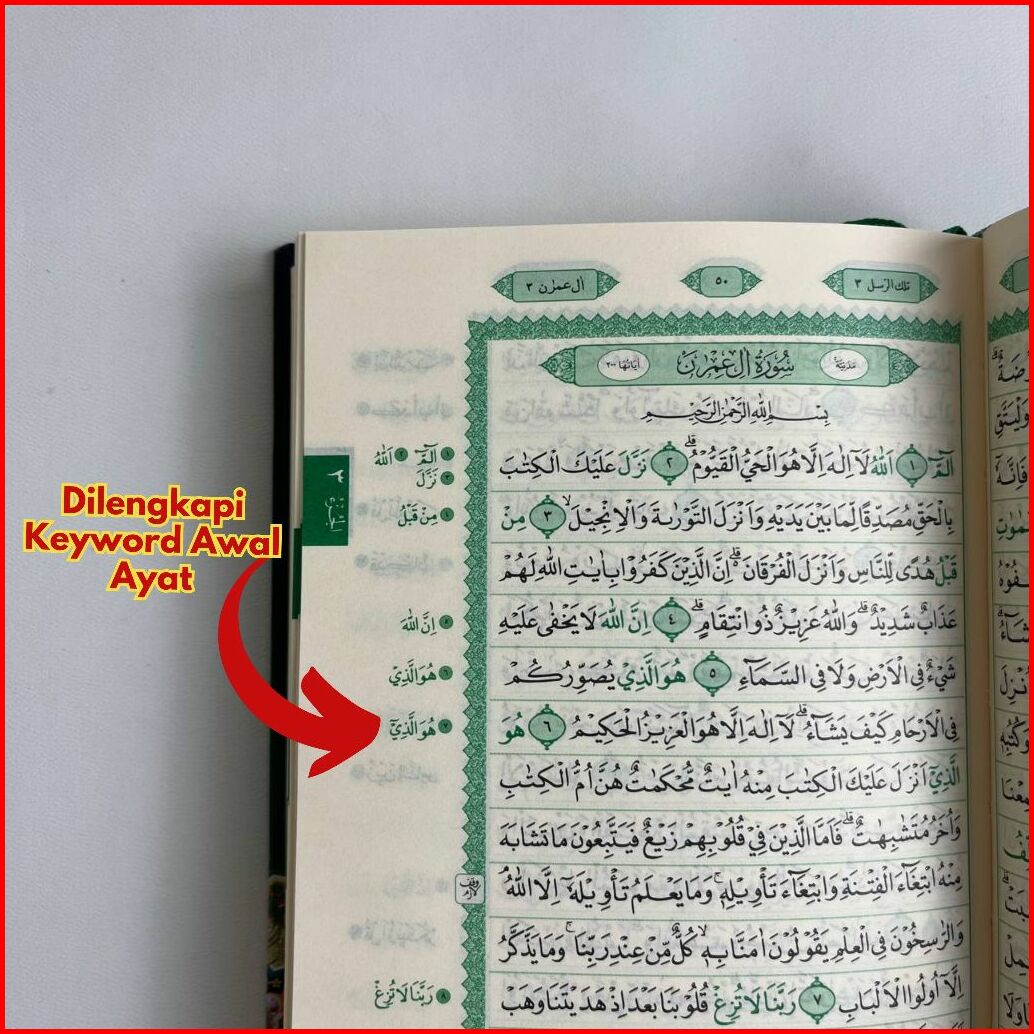 Dilengkapi
Keyword Awal
Ayat
تلك الرسل ٣
٥٠
اٰل عمرٰن ٣
مَدَنِيَّة
سُوْرَةُ اٰلِ عِمْرٰنَ
اٰيَاتُهَا ٢٠٠
بِسْمِ اللّٰهِ الرَّحْمٰنِ الرَّحِيْمِ
الۤمّۤ ١ اَللّٰهُ لَآ اِلٰهَ اِلَّا هُوَ الْحَيُّ الْقَيُّوْمُۗ ٢ نَزَّلَ عَلَيْكَ الْكِتٰبَ
بِالْحَقِّ مُصَدِّقًا لِّمَا بَيْنَ يَدَيْهِ وَاَنْزَلَ التَّوْرٰىةَ وَالْاِنْجِيْلَۙ ٣ مِنْ
قَبْلُ هُدًى لِّلنَّاسِ وَاَنْزَلَ الْفُرْقَانَۗ اِنَّ الَّذِيْنَ كَفَرُوْا بِاٰيٰتِ اللّٰهِ لَهُمْ
عَذَابٌ شَدِيْدٌۗ وَاللّٰهُ عَزِيْزٌ ذُو انْتِقَامٍۗ ٤ اِنَّ اللّٰهَ لَا يَخْفٰى عَلَيْهِ
شَيْءٌ فِى الْاَرْضِ وَلَا فِى السَّمَاۤءِ ٥ هُوَ الَّذِيْ يُصَوِّرُكُمْ
فِى الْاَرْحَامِ كَيْفَ يَشَاۤءُۗ لَآ اِلٰهَ اِلَّا هُوَ الْعَزِيْزُ الْحَكِيْمُ ٦ هُوَ
الَّذِيْٓ اَنْزَلَ عَلَيْكَ الْكِتٰبَ مِنْهُ اٰيٰتٌ مُّحْكَمٰتٌ هُنَّ اُمُّ الْكِتٰبِ
وَاُخَرُ مُتَشٰبِهٰتٌۗ فَاَمَّا الَّذِيْنَ فِيْ قُلُوْبِهِمْ زَيْغٌ فَيَتَّبِعُوْنَ مَا تَشَابَهَ
مِنْهُ ابْتِغَاۤءَ الْفِتْنَةِ وَابْتِغَاۤءَ تَأْوِيْلِهٖۚ وَمَا يَعْلَمُ تَأْوِيْلَهٗٓ اِلَّا اللّٰهُ
وَالرّٰسِخُوْنَ فِى الْعِلْمِ يَقُوْلُوْنَ اٰمَنَّا بِهٖۙ كُلٌّ مِّنْ عِنْدِ رَبِّنَاۚ وَمَا يَذَّكَّرُ
اِلَّآ اُولُوا الْاَلْبَابِ ٧ رَبَّنَا لَا تُزِغْ قُلُوْبَنَا بَعْدَ اِذْ هَدَيْتَنَا وَهَبْ
١ الۤمّۤ ٢ اَللّٰهُ
٣ نَزَّلَ
٤ مِنْ قَبْلُ
٥ اِنَّ اللّٰهَ
٦ هُوَ الَّذِيْ
٧ هُوَ الَّذِيْٓ
٨ رَبَّنَا لَا تُزِغْ
وقف لازم
٣
الجزء